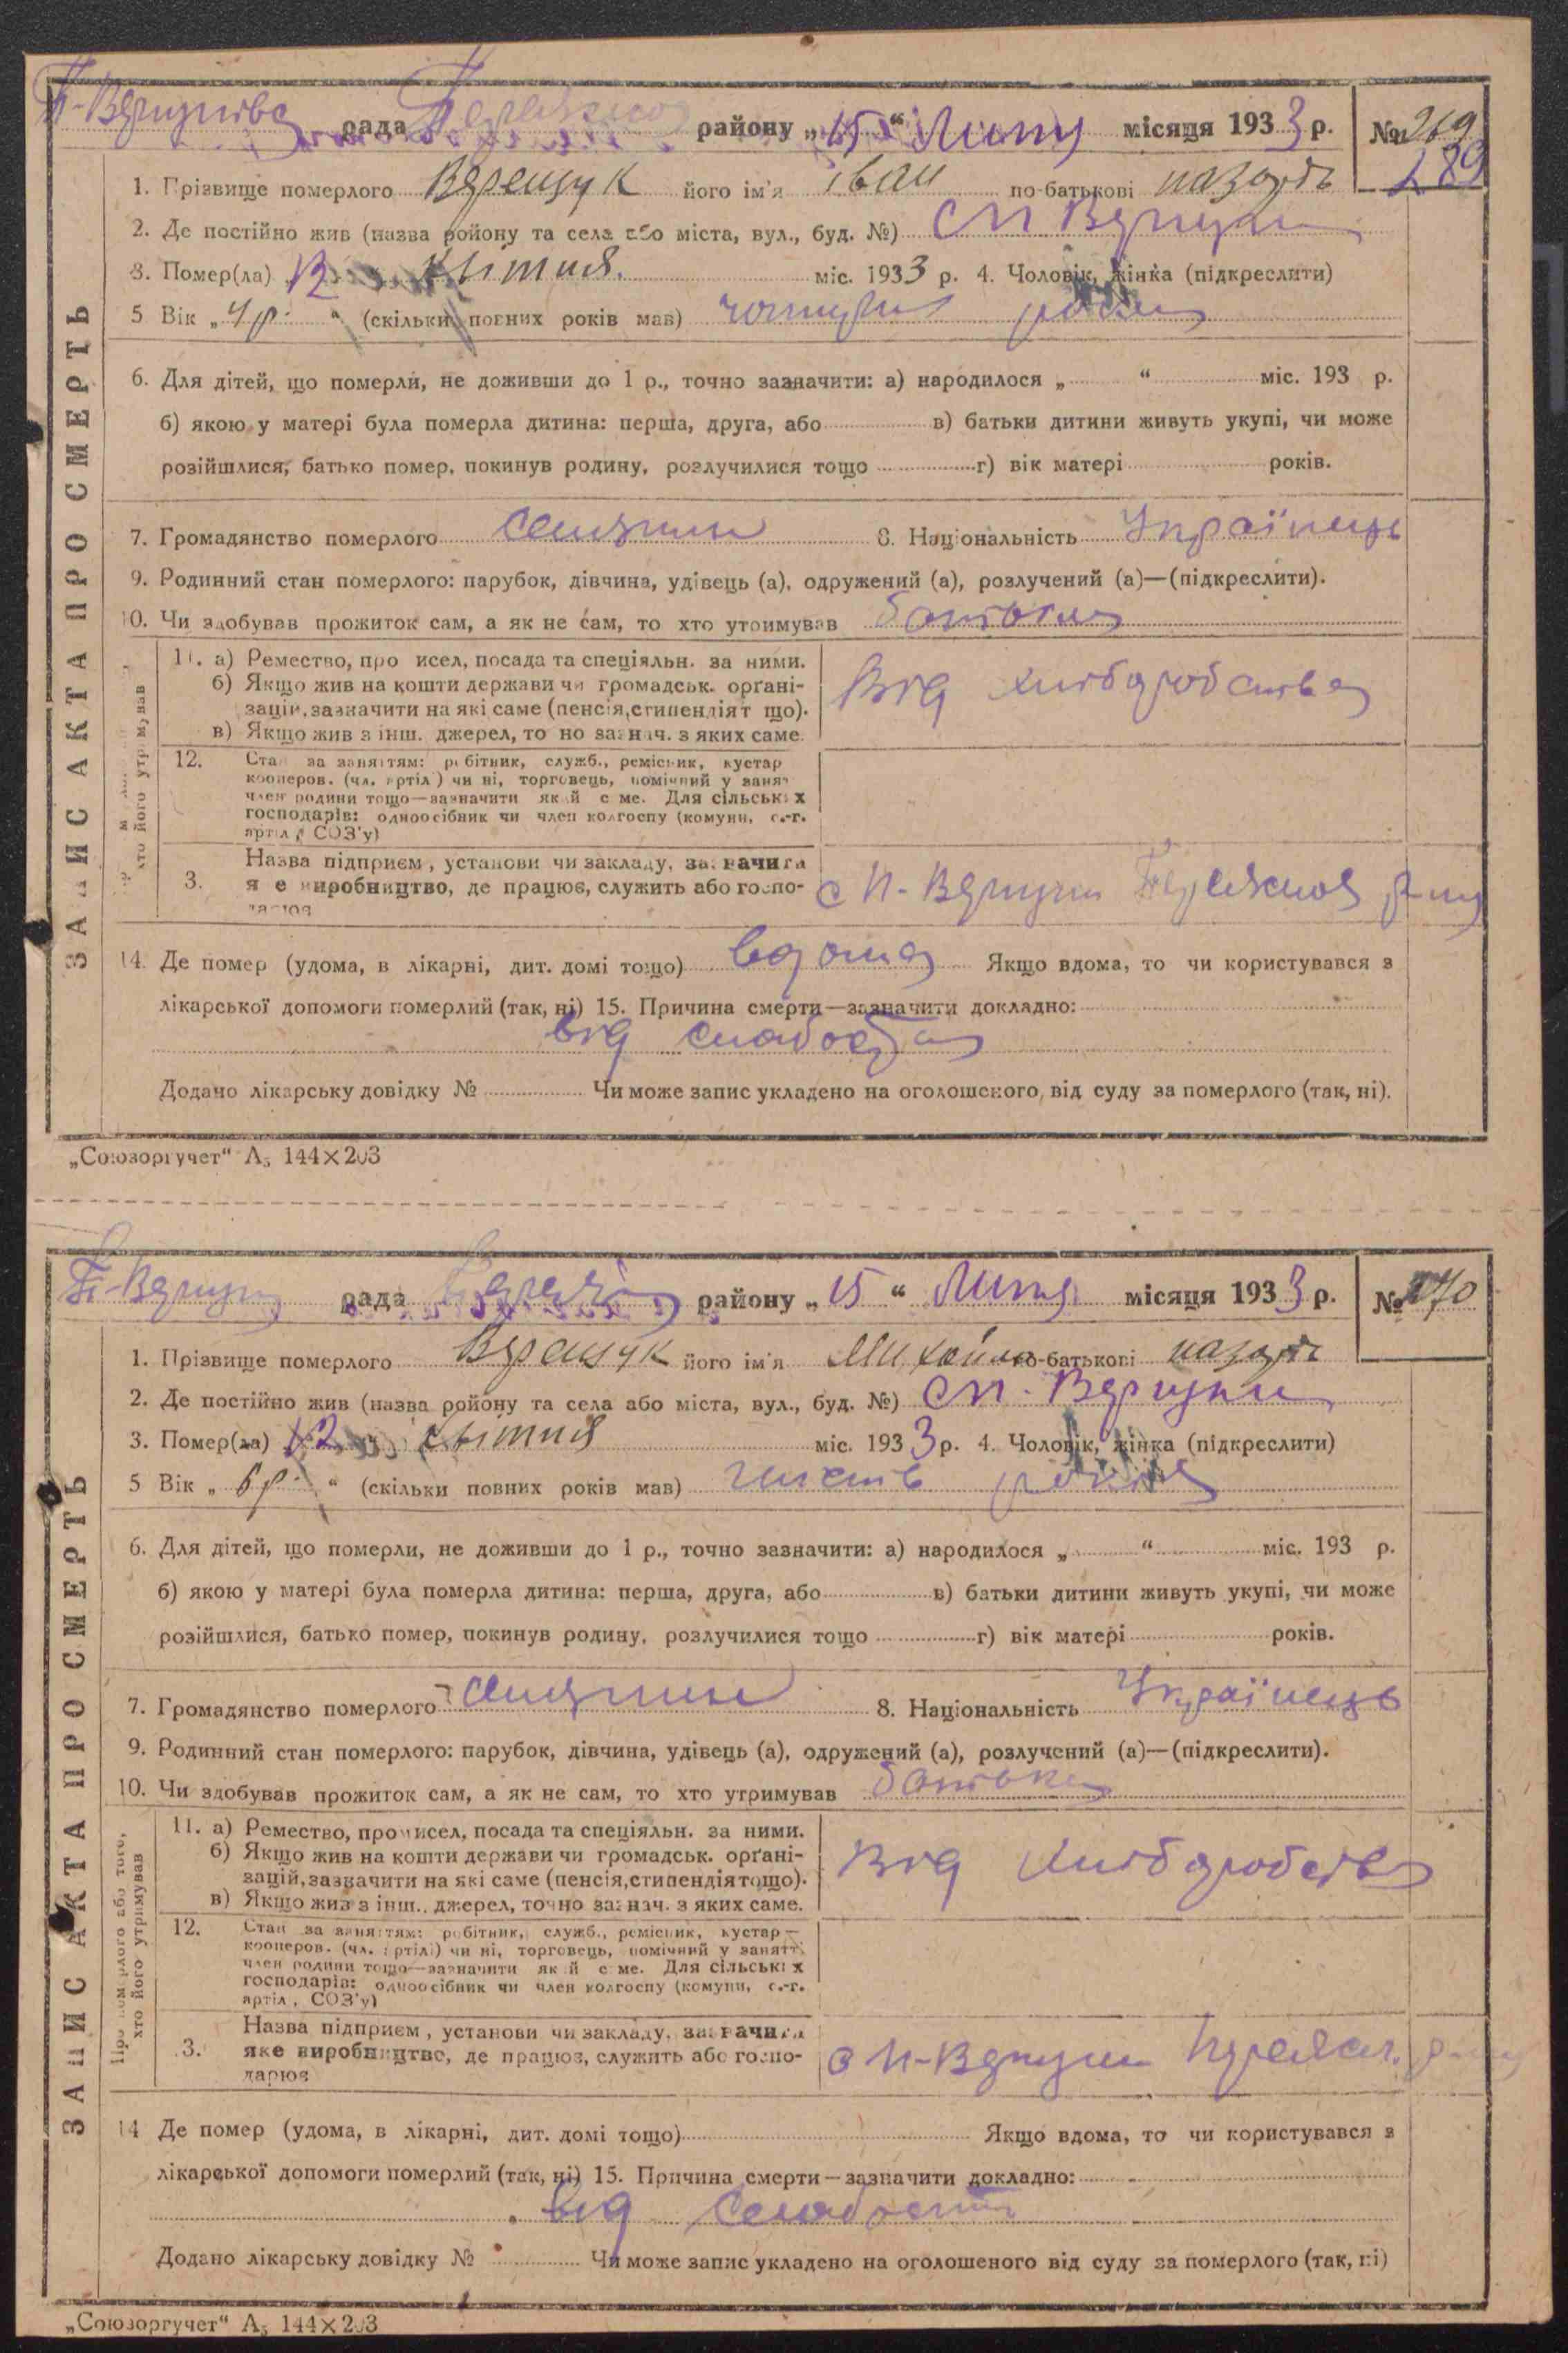 рада району „15“ місяця 1933 р. № 269
289
1. Прізвище померлого Верещук його ім'я іван по-батькові назарів
2. Де постійно жив (назва району та села або міста, вул., буд. №)
3. Помер(ла) 12 квітня міс. 1933 р. 4. Чоловік, жінка (підкреслити)
5 Вік „4 р.“ (скільки повних років мав) чотири роки
6. Для дітей, що померли, не доживши до 1 р., точно зазначити: а) народилося „ “ міс. 193 р.
б) якою у матері була померла дитина: перша, друга, або в) батьки дитини живуть укупі, чи може
розійшлися, батько помер, покинув родину, розлучилися тощо г) вік матері років.
7. Громадянство померлого 8. Національність Українець
9. Родинний стан померлого: парубок, дівчина, удівець (а), одружений (а), розлучений (а)—(підкреслити).
10. Чи здобував прожиток сам, а як не сам, то хто утримував батько
11. а) Ремество, промисел, посада та спеціяльн. за ними.
б) Якщо жив на кошти держави чи громадськ. орґані-
зацій, зазначити на які саме (пенсія, стипендія тощо).
в) Якщо жив з інш. джерел, точно зазнач. з яких саме.
Від хліборобства
12. Стан за заняттям: робітник, служб., ремісник, кустар
кооперов. (чл. артілі) чи ні, торговець, помічний у занятті
член родини тощо—зазначити який саме. Для сільських
господарів: одноосібник чи член колгоспу (комуни, с.-г.
артілі, СОЗ'у)
3. Назва підприєм., установи чи закладу, зазначити
яке виробництво, де працює, служить або госпо-
дарює
14. Де помер (удома, в лікарні, дит. домі тощо) вдома Якщо вдома, то чи користувався з
лікарської допомоги померлий (так, ні) 15. Причина смерти—зазначити докладно:
від слабости
Додано лікарську довідку № Чи може запис укладено на оголошеного від суду за померлого (так, ні).
ЗАПИС АКТА ПРО СМЕРТЬ
„Союзоргучет“ А₅ 144×203
рада району „15“ місяця 1933 р. № 270
1. Прізвище померлого Верещук його ім'я Михайло по-батькові назарів
2. Де постійно жив (назва району та села або міста, вул., буд. №)
3. Помер(ла) 12 квітня міс. 1933 р. 4. Чоловік, жінка (підкреслити)
5 Вік „6 р.“ (скільки повних років мав) шість років
6. Для дітей, що померли, не доживши до 1 р., точно зазначити: а) народилося „ “ міс. 193 р.
б) якою у матері була померла дитина: перша, друга, або в) батьки дитини живуть укупі, чи може
розійшлися, батько помер, покинув родину, розлучилися тощо г) вік матері років.
7. Громадянство померлого 8. Національність Українець
9. Родинний стан померлого: парубок, дівчина, удівець (а), одружений (а), розлучений (а)—(підкреслити).
10. Чи здобував прожиток сам, а як не сам, то хто утримував батько
Про померлого або того, хто його утримував
11. а) Ремество, промисел, посада та спеціяльн. за ними.
б) Якщо жив на кошти держави чи громадськ. орґані-
зацій, зазначити на які саме (пенсія, стипендія тощо).
в) Якщо жив з інш. джерел, точно зазнач. з яких саме.
Від хліборобств
12. Стан за заняттям: робітник, служб., ремісник, кустар—
кооперов. (чл. артілі) чи ні, торговець, помічний у занятті
член родини тощо—зазначити який саме. Для сільських
господарів: одноосібник чи член колгоспу (комуни, с.-г.
артілі, СОЗ'у)
3. Назва підприєм., установи чи закладу, зазначити
яке виробництво, де працює, служить або госпо-
дарює
14 Де помер (удома, в лікарні, дит. домі тощо) Якщо вдома, то чи користувався з
лікарської допомоги померлий (так, ні) 15. Причина смерти—зазначити докладно:
від слабости
Додано лікарську довідку № Чи може запис укладено на оголошеного від суду за померлого (так, ні)
ЗАПИС АКТА ПРО СМЕРТЬ
„Союзоргучет“ А₅ 144×203